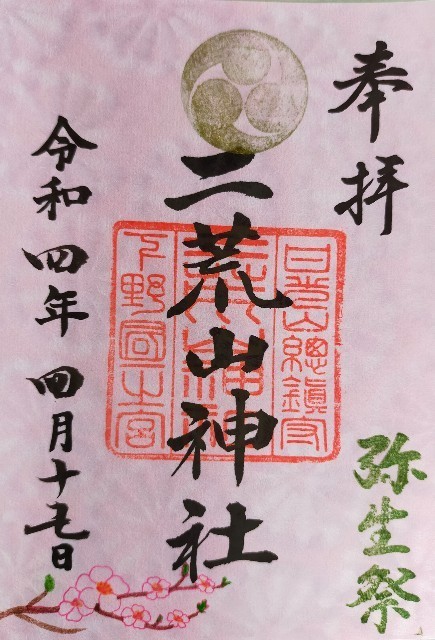 奉拝
二荒山神社
日光山総鎮守
下野国一之宮
弥生祭
令和四年四月十七日